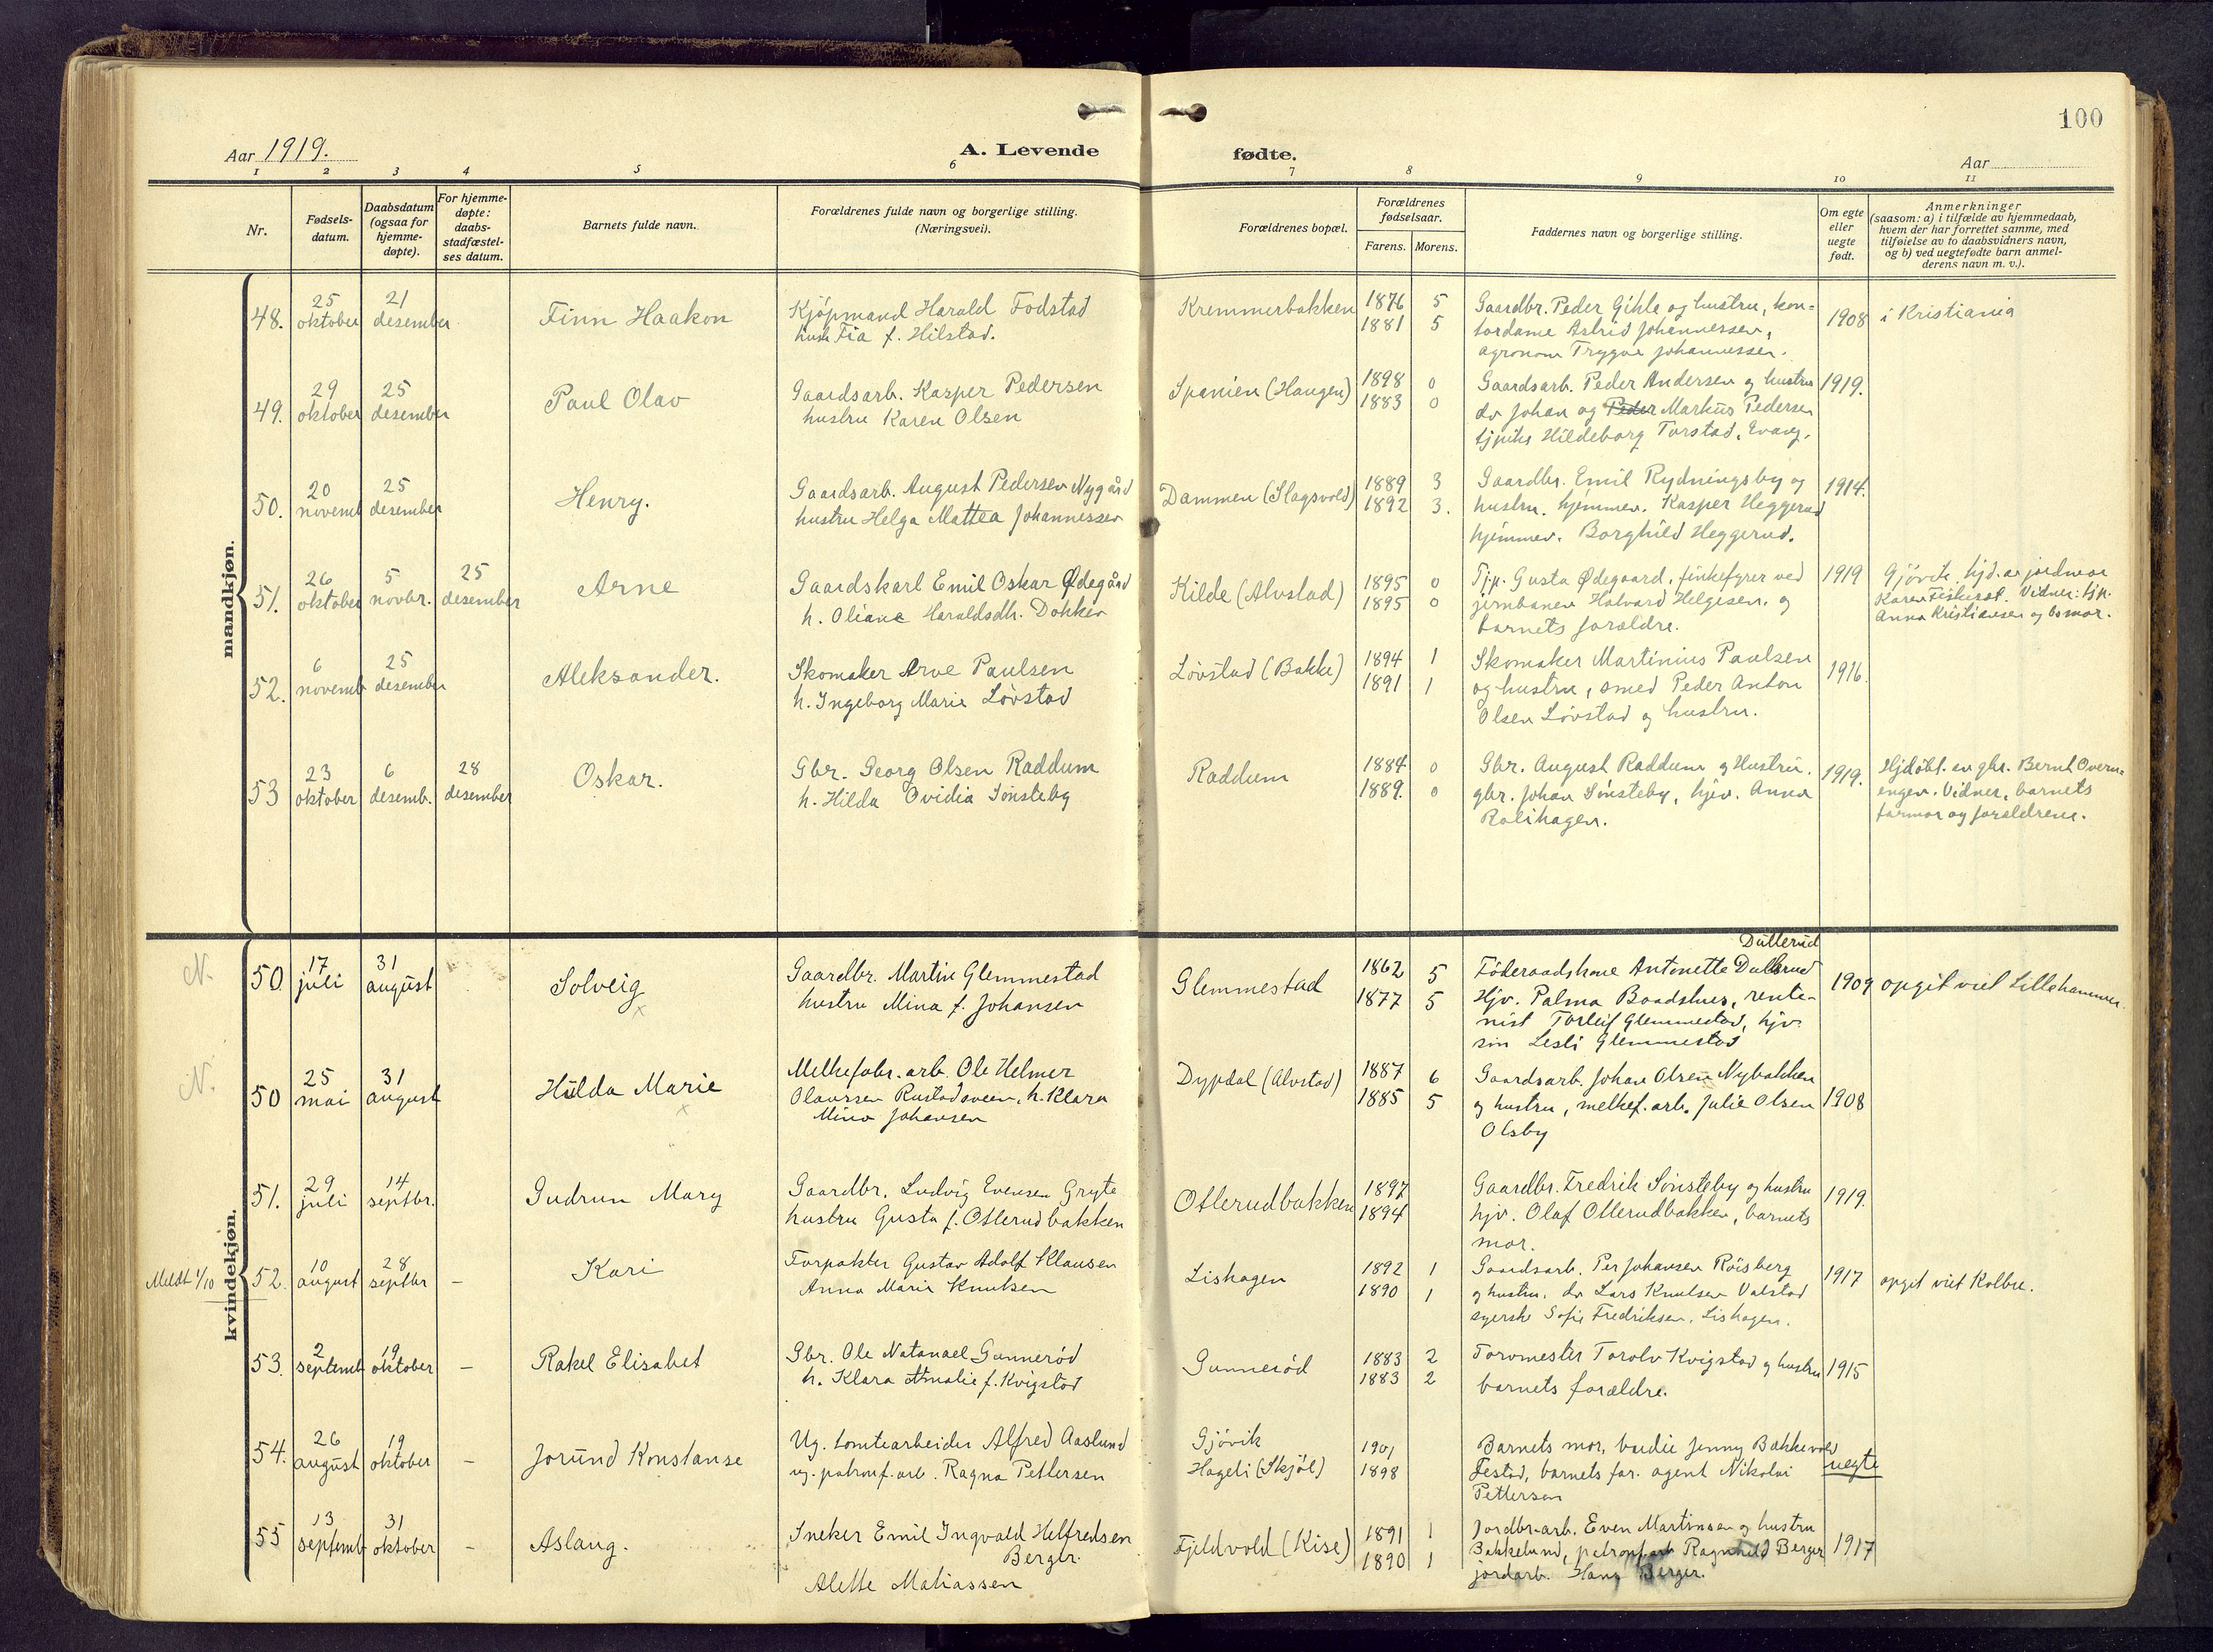 100
Aar 1919.
A. Levende fødte.
Aar
1 2 3 4 5 6 7 8 9 10 11
Nr.
Fødsels-
datum.
Daabsdatum
(ogsaa for
hjemme-
døpte).
For hjemme-
døpte:
daabs-
stadfæstel-
ses datum.
Barnets fulde navn.
Forældrenes fulde navn og borgerlige stilling.
(Næringsvei).
Forældrenes bopæl.
Forældrenes
fødselsaar.
Farens. Morens.
Faddernes navn og borgerlige stilling.
Om egte
eller
uegte
født.
Anmerkninger
(saasom: a) i tilfælde av hjemmedaab,
hvem der har forrettet samme, med
tilføielse av to daabsvidners navn,
og b) ved uegtefødte barn anmel-
derens navn m. v.).
mandkjøn.
48.
25
oktober
21
desember
Finn Haakon
Kjøpmand Harald Fodstad
hustr Fia f. Hilstad.
Kremmerbakken
1876 5
1881 5
Gaardbr. Peder Gihle og hustru, kon-
tordame Astrid Johannessen,
agronom Trygve Johannessen.
1908
i Kristiania
49.
29
oktober
25
desember
Paul Olav
Gaardsarb. Kasper Pedersen
hustru Karen Olsen
Spanien (Haugen)
1898 0
1883 0
Gaardsarb. Peder Andersen og hustru
do Johan og Peder Markus Pedersen
tjpike Hildeborg Torstad, Evang.
1919.
50.
20
novemb
25
desember
Henry.
Gaardsarb. August Pedersen Nygård
hustru Helga Mattea Johannessen
Dammen (Slagsvold)
1889 3
1892 3.
Gaardbr. Emil Rydningsby og
hustru. hjemmev. Kasper Heggerud
hjemmev. Borghild Heggerud.
1914.
51.
26
oktober
5
novbr.
25
desember
Arne
Gaardskarl Emil Oskar Ødegård
h. Oliane Haraldsdtr. Dokken
Kilde (Alvstad)
1895 0
1895 0
Tjp. Gusta Ødegaard, finkefyrer ved
jernbanen Halvard Helgesen, og
barnets forældre.
1919
Gjøvik. hjd. av jordmor
Karen Fiskeset. Vidner: tjp.
Anna Kristiansen og bsmor.
52.
6
novemb
25
desember
Aleksander.
Skomaker Arve Paulsen
h. Ingeborg Marie Løvstad
Løvstad (Bakke)
1894 1
1891 1
Skomaker Martinius Paulsen
og hustru, smed Peder Anton
Olsen Løvstad og hustru.
1916.
53
23
oktober
6
desemb.
28
desember
Oskar.
Gbr. Georg Olsen Raddum
h. Hilda Ovidia Sønsteby
Raddum
1884 0
1889. 0
Gbr. August Raddum og Hustru.
gbr. Johan Sønsteby, hjv. Anna
Rolihagen.
1919.
Hjdøbt. av gbr. Bernt Overn-
engen. Vidner, barnets
farmor og forældrene.
kvindekjøn.
N.
50
17
juli
31
august
Solveig
x
Gaardbr. Martin Glemmestad
hustru Mina f. Johansen
Glemmestad
1862 5
1877 5
Dullerud
Føderaadskone Antonette Dullerud
Hjv. Palma Baadshus, rente-
nist Torleif Glemmestad, hjv.
sin Lesli Glemmestad
1909
opgit viet Lillehammer.
N.
50
25
mai
31
august
Hilda Marie
x
Melkefabr. arb. Ole Helmer
Olaussen Rustadsveen, h. Klara
Mina Johansen
Dypdal (Alvstad)
1887 6
1885 5
Gaardsarb. Johan Olsen Nybakken
og hustru, melkef. arb. Julie Olsen
Olsby
1908
51.
29
juli
14
septbr.
Gudrun Mary
Gaardbr. Ludvig Evensen Gryte
hustru Gusta f. Ollerudbakken
Ollerudbakken
1897
1894
Gaardbr. Fredrik Sønsteby og hustru
hjv. Olaf Ollerudbakken, barnets
mor.
1919.
Meldt 1/10
52.
10
august
28
septbr
–
Kari
Forpakter Gustav Adolf Klausen
Anna Marie Knutsen
Lishagen
1892 1
1890 1
Gaardsarb. Per Johansen Røisberg
og hustru. do Lars Knutsen Valstad
syerske Sofie Fredriksen, Lishagen.
1917
opgit viet Kolbu.
53.
2
septemb
19
oktober
–
Rakel Elisabet
Gbr. Ole Natanael Gunnerød
h. Klara Amalie f. Kvigstad
Gunnerød
1883 2
1883 2
Torvmester Torolv Kvigstad og hustru
barnets forældre.
1915
54.
26
august
19
oktober
–
Jorund Konstanse
Ug. tomtearbeider Alfred Aaslund
ug. patronf. arb. Ragna Pettersen
Gjøvik
Hageli (Skjøl)
1901
1898
Barnets mor, budeie Jenny Bakkevold
Festad, barnets far. agent Nikolai
Pettersen
uegte
55
13
septemb
31
oktober
–
Aslaug.
Sneker Emil Ingvald Helfredsen
Berger.
Alette Matiassen
Fjeldvold (Kise)
1891 1
1890 1
Jordbr.arb. Even Martinsen og hustru
Bakkelund, patronf. arb Ragnhild Berger
jordarb. Hans Berger.
1917